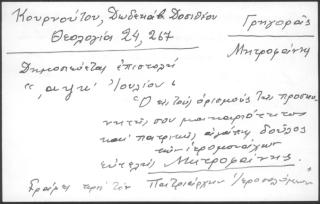 Κουρνούτου, Δωδεκάβ. Δοσιθέου
Θεολογία 24, 267
Γρηγοράς
Μητροφάνης
Δημοσιεύεται ἐπιστολή
Ἰουλίου
"Ὁ εἰς τοὺς ὁρισμοὺς τῆς προσκυ
νητῆς σου μακαριότητος
καὶ πατρικῆς ἀγάπης δοῦλος
τῶν ἱερομονάχων
εὐτελὴς Μητροφάνης.
Γράφει περὶ τὸν Πατριάρχην Ἱεροσολύμων